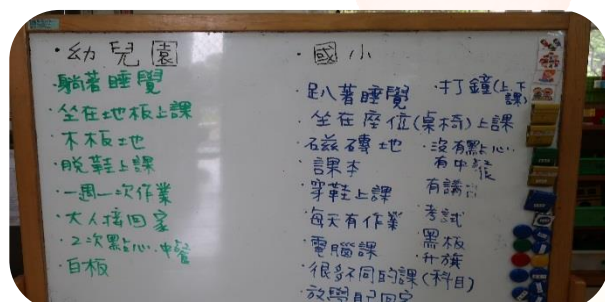 ·幼兒園
·躺著睡覺
·坐在地板上課
·木板地
·脫鞋上課
·一週一次作業
·大人接回家
·2次點心·中餐
·白板
·國小
·趴著睡覺
·坐在座位(桌椅)上課
·磁磚地
·課本
·穿鞋上課
·每天有作業
·電腦課
·很多不同的課(科目)
·打鐘(上.下課)
·沒有點心..
有中餐
有講
·考試
·黑板
·升旗